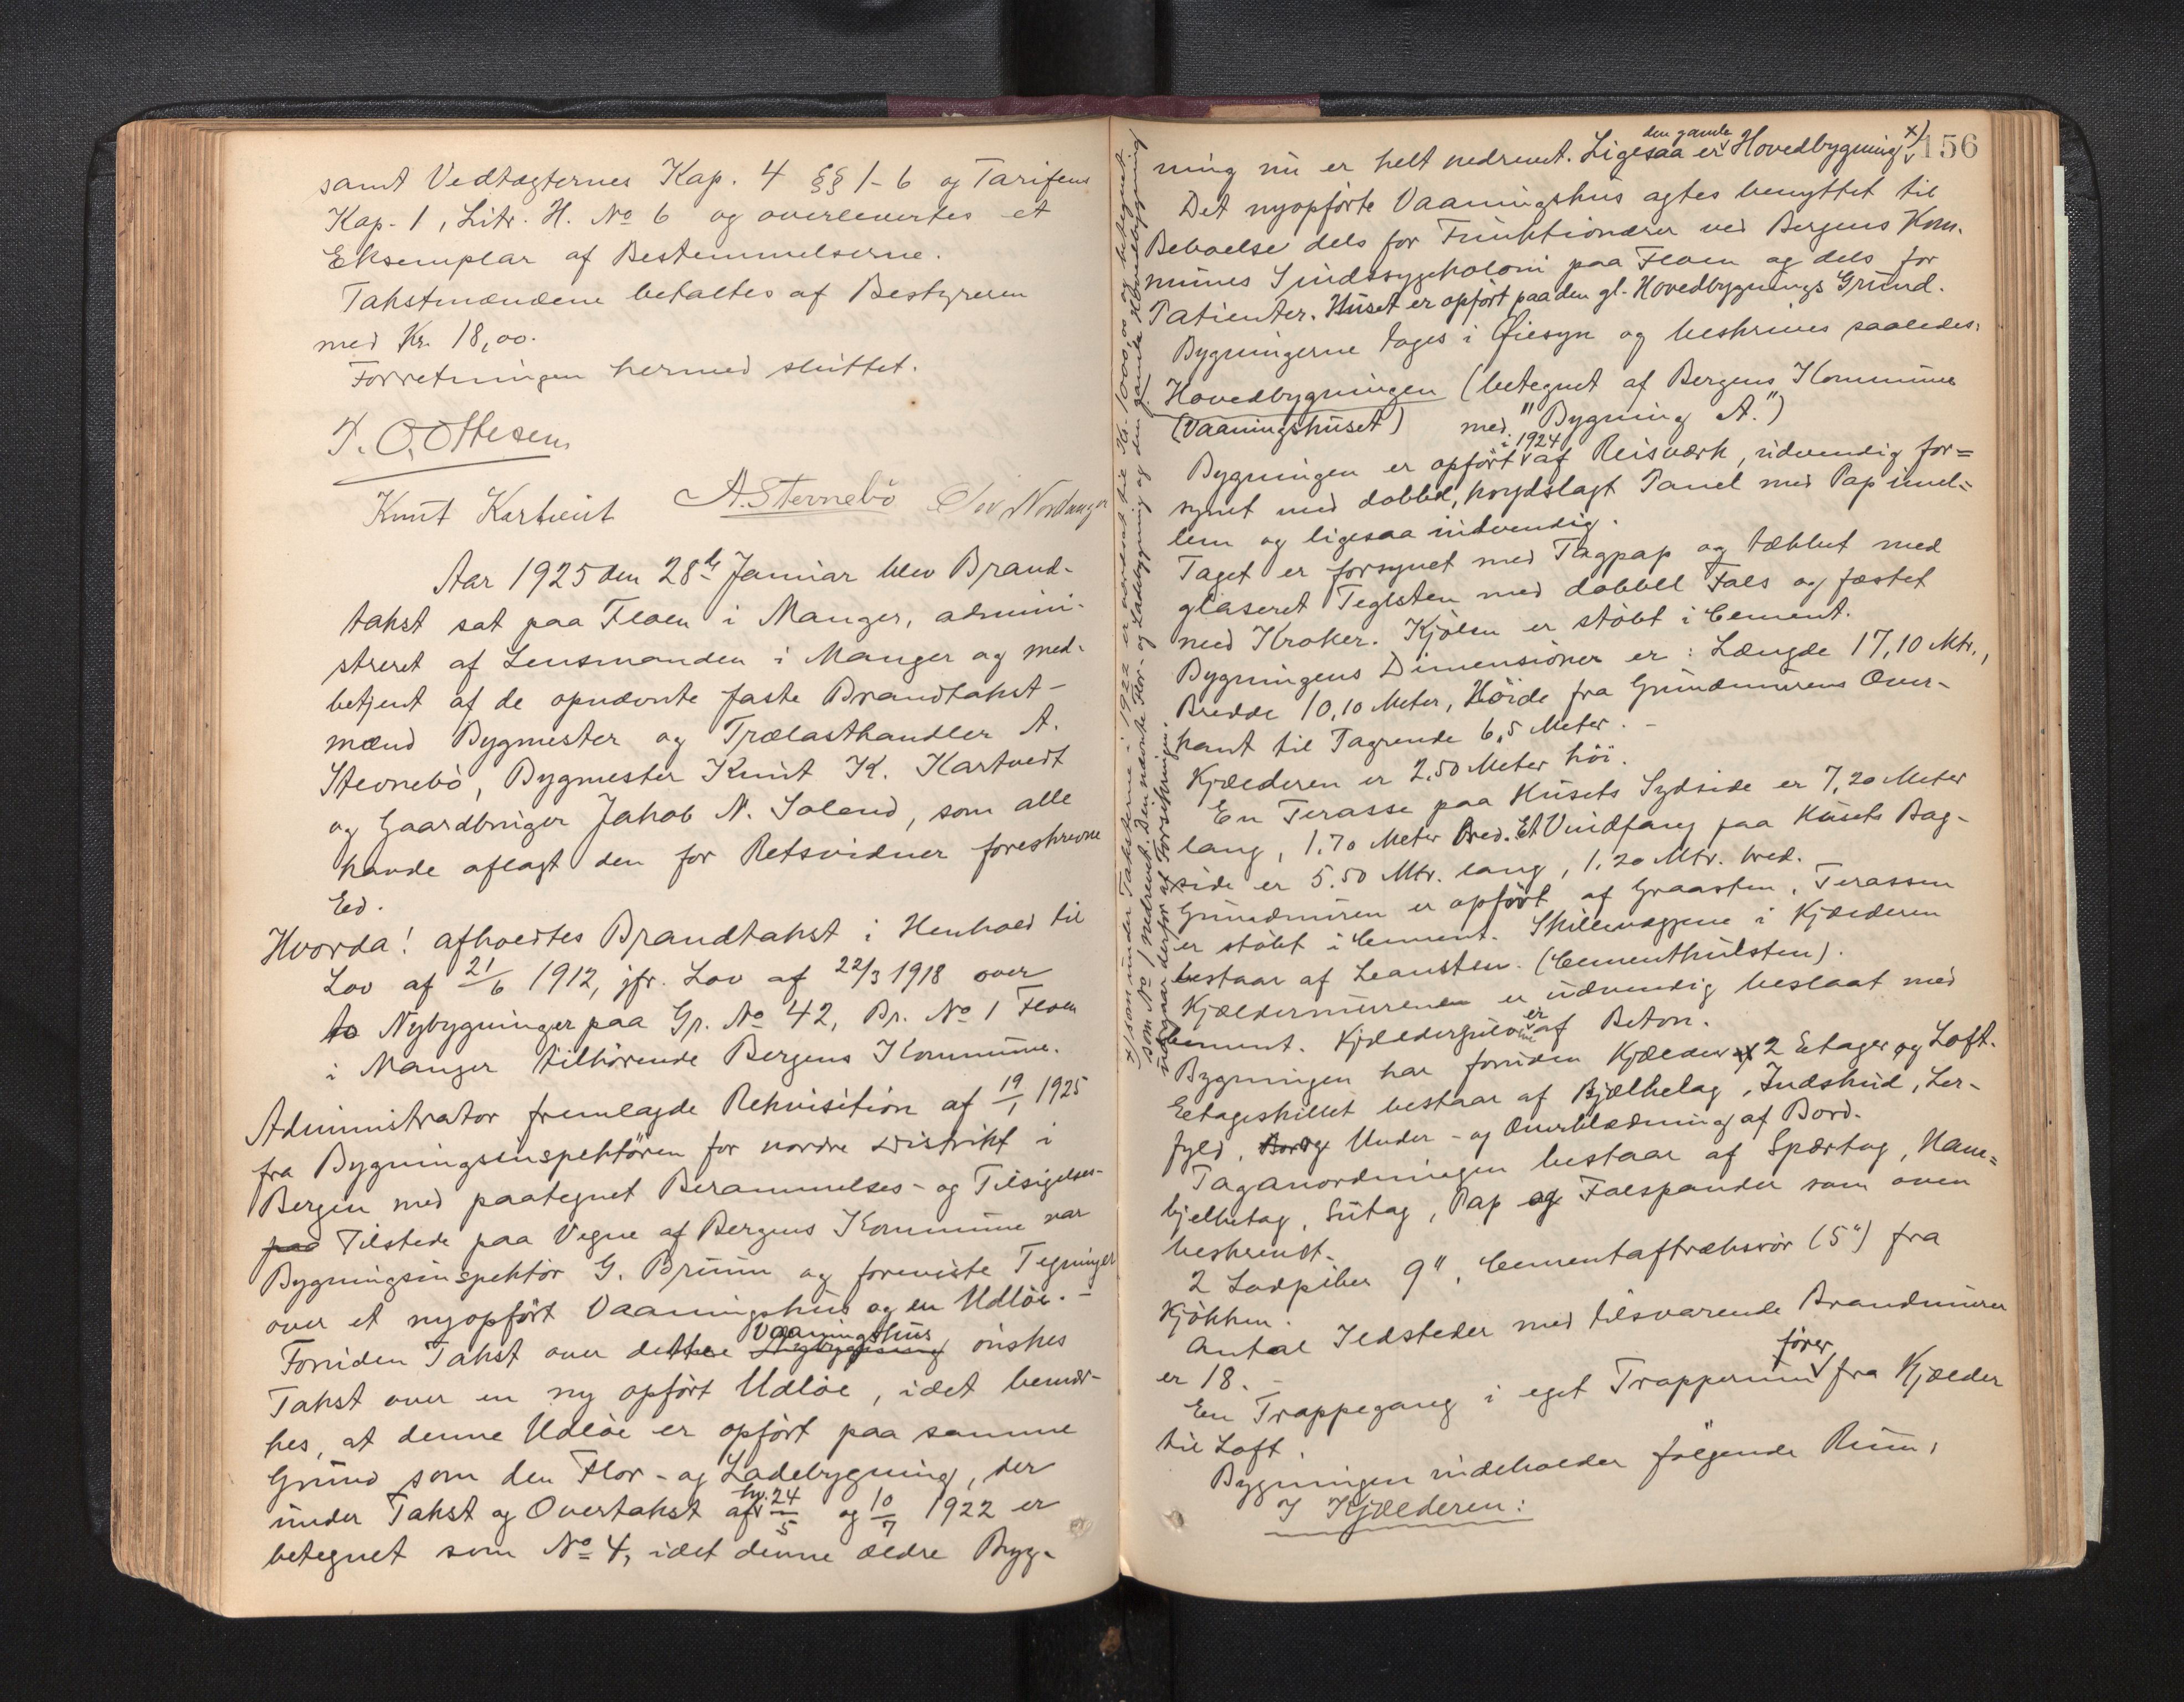 samt Vedtægternes Kap. 4 §§ 1-6 og Tarifens
Kap. 1, Litr. H. No 6 og overlevertes et
Eksemplar af Bestemmelserne.
Takstmændene betaltes af Bestyreren
med Kr. 18,00.
Forretningen hermed sluttet.
T. O. Ottesen
Knut Kartveit A. Stevnebö
Aar 1925 den 28de Januar blev Brand-
takst sat paa Floen i Manger, admini-
streret af Lensmanden i Manger og med-
betjent af de opnævnte faste Brandtakst-
mænd Bygmester og Trælasthandler A.
Stevnebö, Bygmester Knut K. Kartvedt
og Gaardbruger Jakob N. Soland, som alle
havde aflagt den for Retsvidner foreskrevne
Ed.
Hvorda! afholdtes Brandtakst i Henhold til
Lov af 21/6 1912, jfr. Lov af 22/3 1918 over
to Nybygninger paa Gr. No 42, Br. No 1 Floen
i Manger tilhörende Bergens Kommune.
Administrator fremlagde Rekvisition af 19/1 1925
fra Bygningsinspektören for nordre Distrikt i
Bergen med paategnet Berammelses- og Tilsigelses-
paa Tilstede paa Vegne af Bergens Kommune var
Bygningsinspektör G. Bruun og foreviste Tegninger
over et nyopfört Vaaningshus og en Udlöe. -
Foruden Takst over dette Nybygning Vaaningshus önskes
Takst over en ny opfört Udlöe, idet bemær-
kes, at denne Udlöe er opfört paa samme
Grund som den Flor- og Ladebygning, der
under Takst og Overtakst af hv. 24/5 og 10/7 1922 er
betegnet som No 4, idet denne ældre Byg-
156
ning nu er helt nedrevet. Ligesaa er den gamle Hovedbygning x)
Det nyopförte Vaaningshus agtes benyttet til
Beboelse dels for Funktionærer ved Bergens Kom-
munes Sindssygekoloni paa Floen og dels for
Patienter. Huset er opfört paa den gl. Hovedbygnings Grund.
Bygningerne tages i Øiesyn og beskrives saaledes:
Hovedbygningen (betegnet af Bergens Kommune
(Vaaningshuset) med "Bygning A.")
Bygningen er opfört i 1924 af Reisværk, udvendig for=
synet med dobbel, pløydslagt Panel med Pap imel=
lem og ligesaa indvendig.
Taget er forsynet med Tagpap og tækket med
glaseret Teglsten med dobbel Fals og fæstet
med Kroker. Kjölen er stöbt i Cement.
Bygningens Dimensioner er: Længde 17,10 Mtr.,
Bredde 10,10 Meter, Höide fra Grundmurens Over-
kant til Tagrende 6,5 Meter. -
Kjælderen er 2,50 Meter höi.
En Terasse paa Husets Sydside er 7,20 Meter
lang, 1.70 Meter bred. Et Vindfang paa Husets Bag-
side er 5.50 Mtr. lang, 1,20 Mtr. bred.
Grundmuren er opfört af Graasten. Terassen
er stöbt i Cement. Skillevæggene i Kjælderen
bestaar af Leansten. (Cementhulsten).
Kjældermurene er udvendig beslaat med
Cement. Kjældergulvene er af Beton.
Bygningen har foruden Kjælder 2 Etager og Loft.
Etageskillet bestaar af Bjælkelag, Indskud, Ler-
fyld, Under- og Overklædning af Bord.
Taganordningen bestaar af Spærtag, Hane=
bjelkelag, Sutag, Pap og Falspander som oven
beskrevet.
2 Lodpiber 9", Cementaftræksrör (5") fra
Kjökken.
Antal Ildsteder med tilsvarende Brandmurer
er 18. -
En Trappegang i eget Trapperum förer fra Kjælder
til Loft.
Bygningen indeholder fölgende Rum,
I Kjælderen:
x) som under Taksterne i 1922 er værdsat til Kr. 1000,00 og betegnet
som No 1 nedrevet. Den nævnte Flor- og Ladebygning og den gamle Hovedbygning
udgaar derfor af Forsikringen.